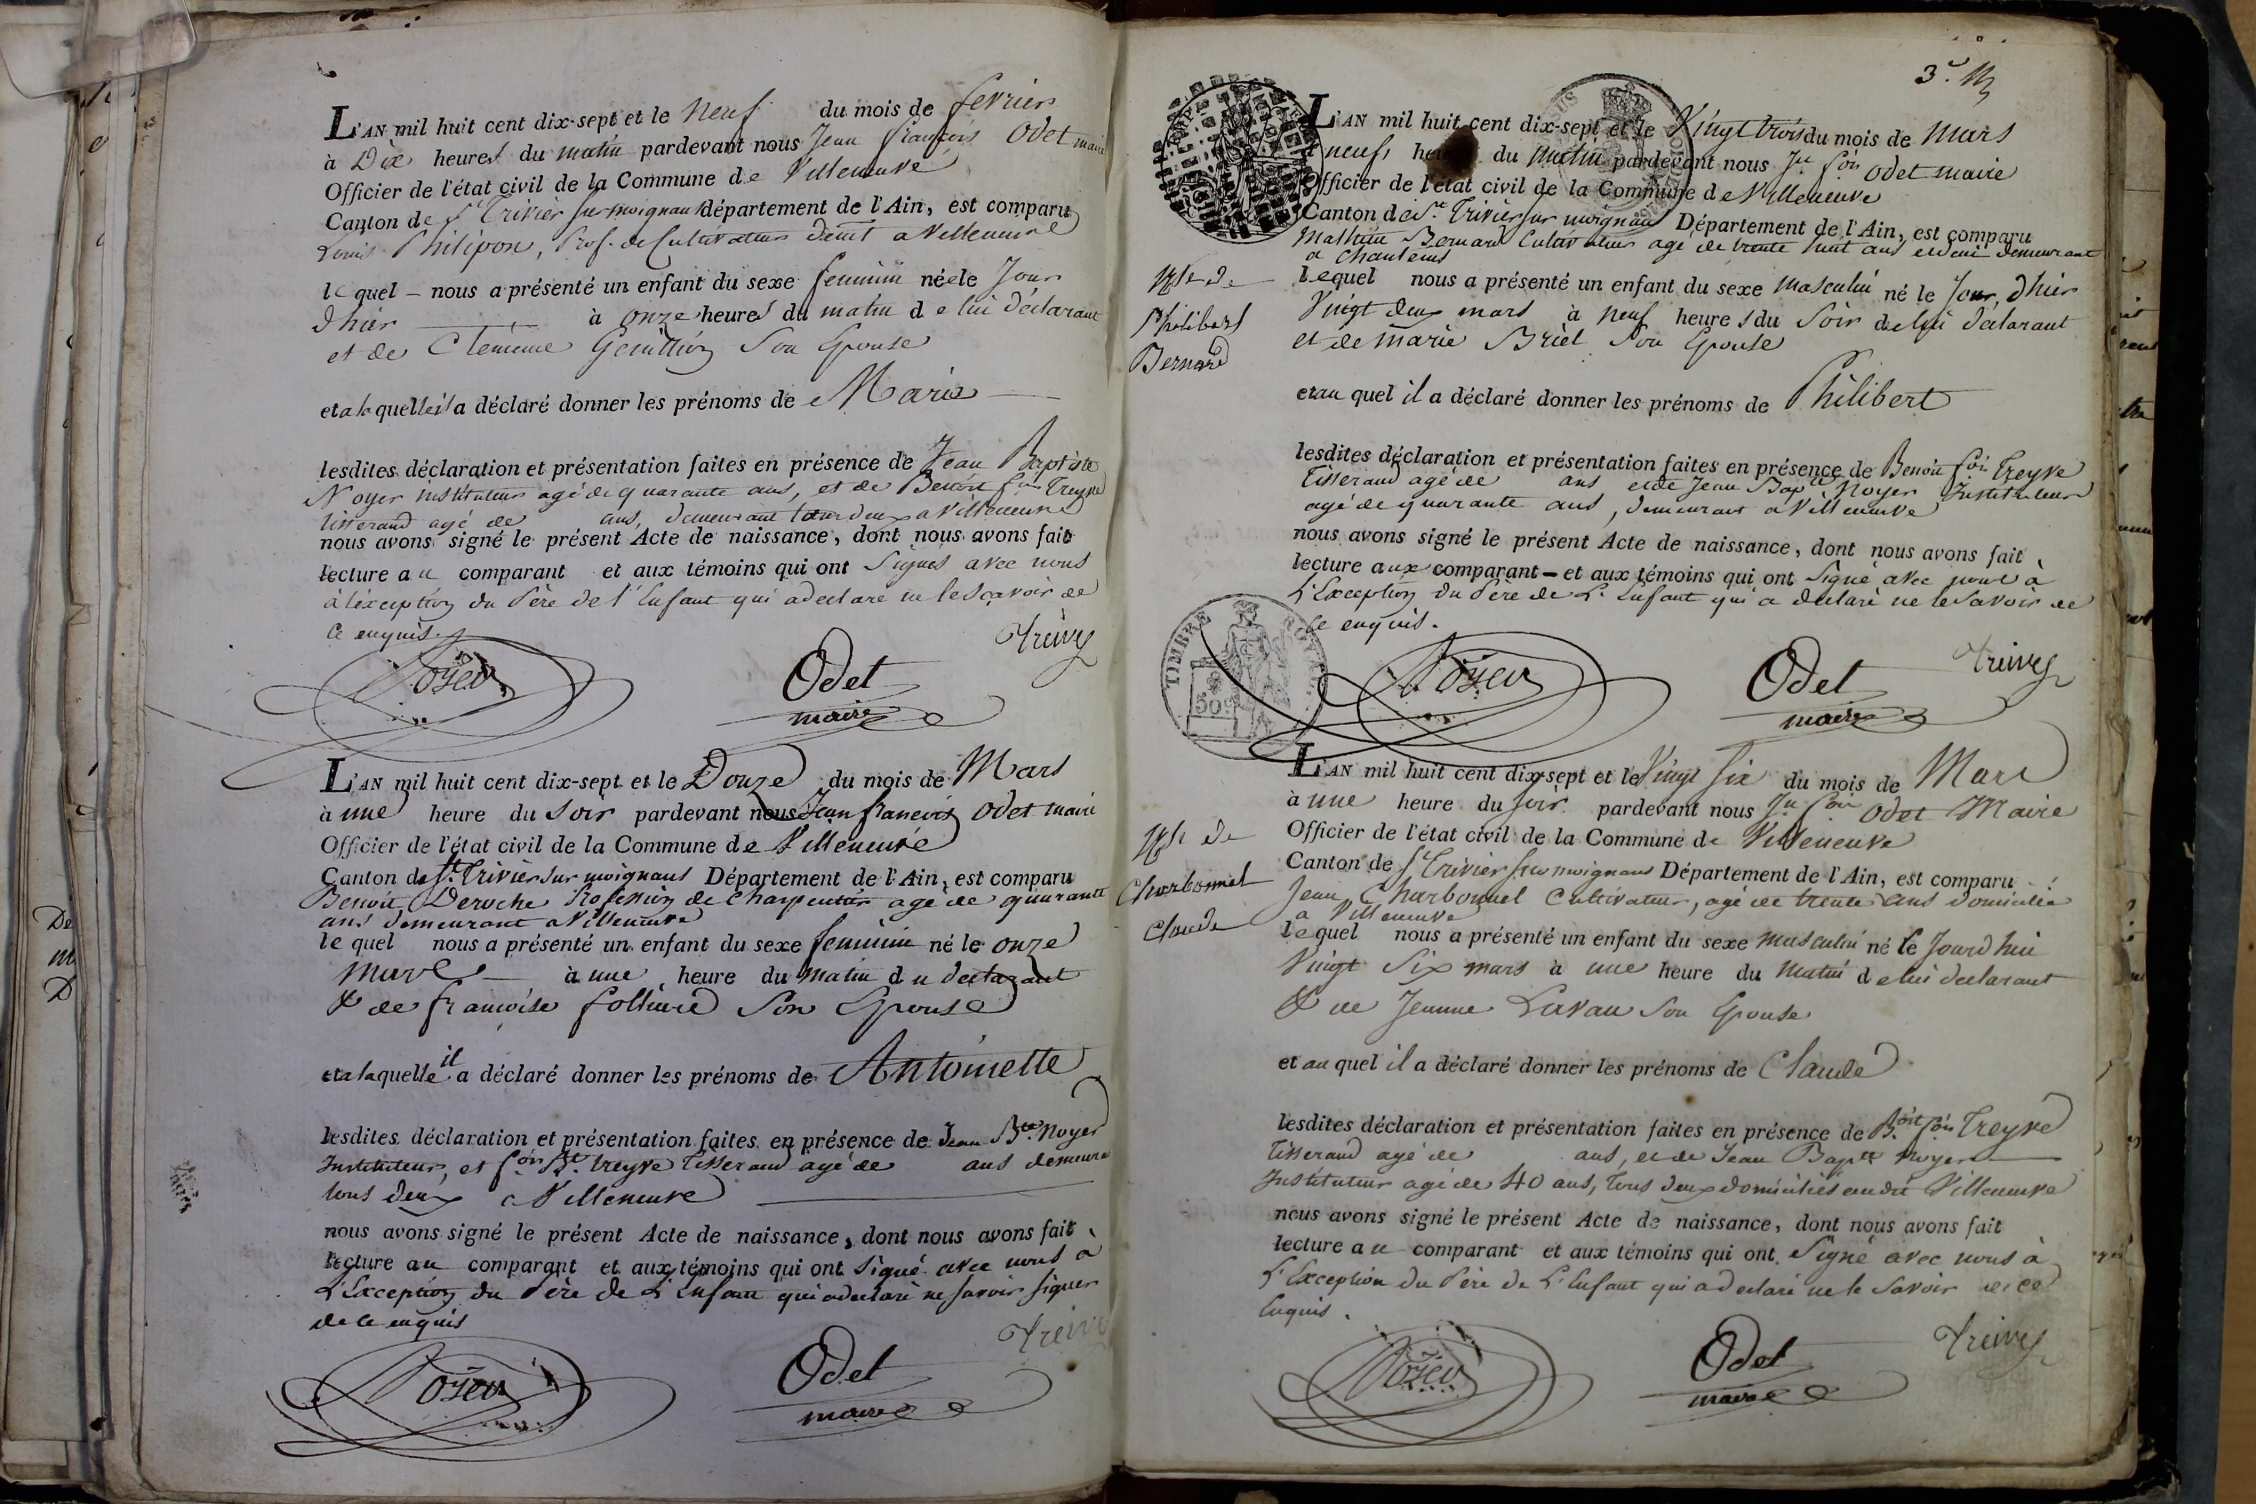 L'AN mil huit cent dix-sept et le neuf du mois de fevrier
à Dix heures du matin pardevant nous Jean françois Odet maire
Officier de l'état civil de la Commune de Villeneuve
Canton de St Trivier sur moignans département de l'Ain, est comparu
Louis Philipon, Prof. de Cultivateur demt a Villeneuve
lequel nous a présenté un enfant du sexe feminin née le Jour
d'hier à onze heures du matin de lui déclarant
et de Clémence Son Epouse
et a laquelle il a déclaré donner les prénoms de Marie
lesdites déclaration et présentation faites en présence de Jean Baptiste
Noyer instituteur agé de quarante ans, et de Benoit fois Treyve
tisserand agé de ans, demeurant tous deux a Villeneuve
nous avons signé le présent Acte de naissance, dont nous avons fait
lecture au comparant et aux témoins qui ont Signés avec nous
à l'exception du Père de l'Enfant qui a declaré ne le sçavoir de
ce enquis.
Noyer Odet Treive
maire
L'AN mil huit cent dix-sept et le Douze du mois de Mars
à une heure du soir pardevant nous Jean francois Odet maire
Officier de l'état civil de la Commune de Villeneuve
Canton de St. Trivier sur moignans Département de l'Ain, est comparu
Benoit Deroche Profession de charpentier agé de quarante
ans demeurant a Villeneuve
le quel nous a présenté un enfant du sexe feminin né le onze
mars à une heure du matin du declarant
& de françoise Son Epouse
et a laquelle il a déclaré donner les prénoms de Antoinette
lesdites déclaration et présentation faites en présence de Jean Bte. Noyer
Instituteur, et fois Bt. treyve Tisserand agé de ans demeurant
tous deux a Villeneuve
nous avons signé le présent Acte de naissance, dont nous avons fait
lecture au comparant et aux témoins qui ont Signé avec nous à
L'Exception du Père de L'Enfant qui a declaré ne savoir signer
de ce enquis
Noyer Odet Treive
maire
3e
L'AN mil huit cent dix-sept et le Vingt trois du mois de mars
à neufs heures du matin pardevant nous Jn fois Odet maire
Officier de l'état civil de la Commune de Villeneuve
Canton de St. Trivier sur moignans Département de l'Ain, est comparu
Mathieu Bernard Cultivateur agé de trente huit ans demeurant
a Chanteins
Nce de
Philibert
Bernard
Lequel nous a présenté un enfant du sexe masculin né le Jour d'hier
Vingt deux mars à neuf heures du Soir de lui déclarant
et de marie Briel Son Epouse
et au quel il a déclaré donner les prénoms de Philibert
lesdites déclaration et présentation faites en présence de Benoit fois Treyve
Tisserand agé de ans et de Jean Bapte Noyer Instituteur
agé de quarante ans, demeurant a Villeneuve
nous avons signé le présent Acte de naissance, dont nous avons fait
lecture aux comparant et aux témoins qui ont Signé avec nous à
L'Exception du Père de L'Enfant qui a declaré ne le Savoir de
ce enquis.
TIMBRE ROYAL
50c
Noyer Odet Treive
maire
L'AN mil huit cent dix-sept et le Vingt Six du mois de Mars
à une heure du soir pardevant nous Jn fois Odet Maire
Officier de l'état civil de la Commune de Villeneuve
Canton de St Trivier sur moignans Département de l'Ain, est comparu
Jean Charbonnel Cultivateur, agé de trente ans domicilié
a Villeneuve
Nce de
Charbonnel
Claude
lequel nous a présenté un enfant du sexe masculin né le Jourd'hui
Vingt Six mars à une heure du matin de lui declarant
& de Jeanne Lavau Son Epouse
et au quel il a déclaré donner les prénoms de Claude
lesdites déclaration et présentation faites en présence de Boit fois Treyve
Tisserand agé de ans, et de Jean Bapte Noyer
Instituteur agé de 40 ans, tous deux domiciliés audit Villeneuve
nous avons signé le présent Acte de naissance, dont nous avons fait
lecture au comparant et aux témoins qui ont Signé avec nous à
L'Exception du Père de L'Enfant qui a declaré ne le Savoir de ce
Enquis.
Noyer Odet Treive
maire